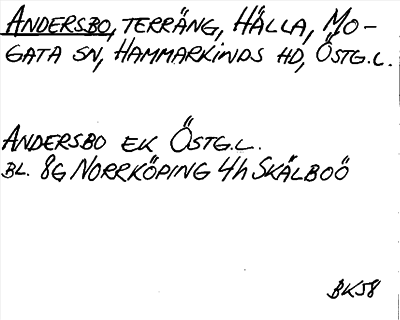 ANDERSBO, TERRÄNG, HÄLLA, MO-
GATA SN, HAMMARKINDS HD, ÖSTG.L.
ANDERSBO EK ÖSTG.L.
BL. 8G NORRKÖPING 4h SKÄLBOÖ
BK58